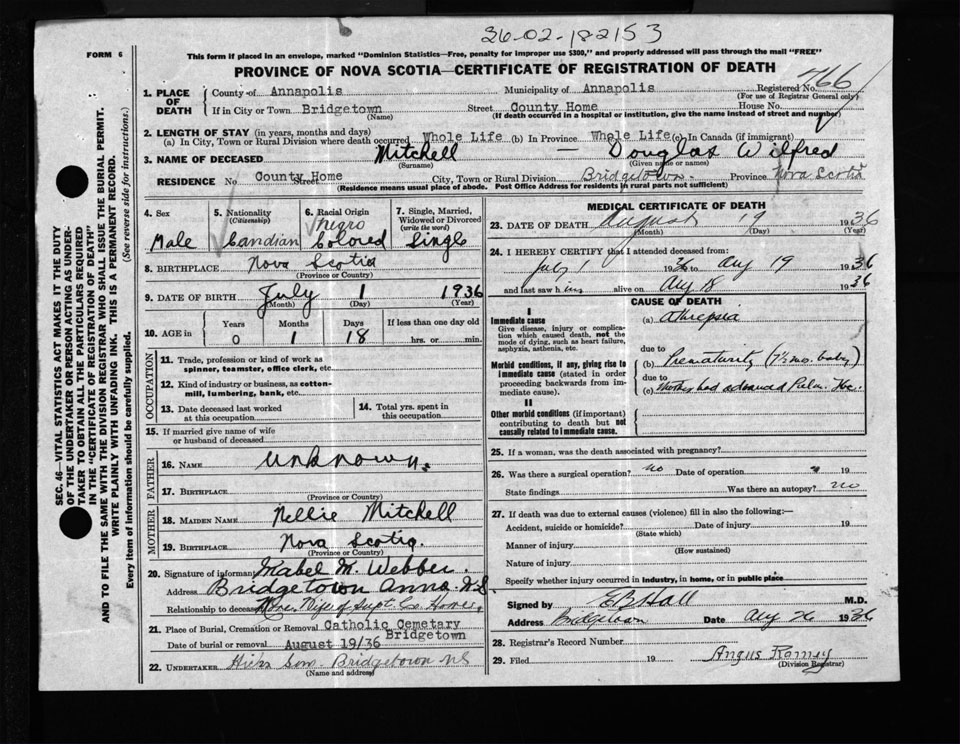 36-02-18215 3
FORM 6
This form if placed in an envelope, marked "Dominion Statistics—Free, penalty for improper use $300," and properly addressed will pass through the mail "FREE"
PROVINCE OF NOVA SCOTIA—CERTIFICATE OF REGISTRATION OF DEATH
1. PLACE OF DEATH
County of Annapolis Municipality of Annapolis Registered No. 766
(For use of Registrar General only)
If in City or Town Bridgetown Street County Home House No.
(Name) (If death occurred in a hospital or institution, give the name instead of street and number)
2. LENGTH OF STAY (in years, months and days)
(a) In City, Town or Rural Division where death occurred Whole Life (b) In Province Whole Life (c) In Canada (if immigrant)
3. NAME OF DECEASED Mitchell Douglas Wilfred
(Surname) (Given name or names)
RESIDENCE No County Home Street City, Town or Rural Division Bridgetown. Province Nova Scotia
(Residence means usual place of abode. Post Office Address for residents in rural parts not sufficient)
4. Sex
Male
5. Nationality
(Citizenship)
Candian
6. Racial Origin
Negro
Colored
7. Single, Married, Widowed or Divorced
(write the word)
Single
8. BIRTHPLACE Nova Scotia
(Province or Country)
9. DATE OF BIRTH July 1 1936
(Month) (Day) (Year)
10. AGE in
Years Months Days If less than one day old
0 1 18 hrs. or min.
OCCUPATION
11. Trade, profession or kind of work as
spinner, teamster, office clerk, etc.
12. Kind of industry or business, as cotton-
mill, lumbering, bank, etc.
13. Date deceased last worked
at this occupation
14. Total yrs. spent in
this occupation
15. If married give name of wife
or husband of deceased
FATHER
16. NAME unknown.
17. BIRTHPLACE
(Province or Country)
MOTHER
18. MAIDEN NAME Nellie Mitchell
19. BIRTHPLACE Nova Scotia.
(Province or Country)
20. Signature of informant Mabel M. Webber.
Address Bridgetown Anna. N.S
Relationship to deceased None, Wife of Supt Co. Home,
21. Place of Burial, Cremation or Removal Catholic Cemetary
Bridgetown
Date of burial or removal August 19/36
22. UNDERTAKER Bridgetown NS
(Name and address)
MEDICAL CERTIFICATE OF DEATH
23. DATE OF DEATH August 19 1936
(Month) (Day) (Year)
24. I HEREBY CERTIFY that I attended deceased from:
July 1 1936 to Aug 19 1936
and last saw him alive on Aug 18 1936
CAUSE OF DEATH
I
Immediate cause
Give disease, injury or complica-
tion which caused death, not the
mode of dying, such as heart failure,
asphyxia, asthenia, etc.
(a) Athrepsia
due to
Morbid conditions, if any, giving rise to
immediate cause (stated in order
proceeding backwards from im-
mediate cause).
(b) Prematurity (7½ mo. baby)
due to
(c) Mother had advanced Pulm. Tbc.
II
Other morbid conditions (if important)
contributing to death but not
causally related to immediate cause.
25. If a woman, was the death associated with pregnancy?
26. Was there a surgical operation? no Date of operation 19
State findings Was there an autopsy? no
27. If death was due to external causes (violence) fill in also the following:—
Accident, suicide or homicide? Date of injury 19
(State which)
Manner of injury
(How sustained)
Nature of injury
Specify whether injury occurred in industry, in home, or in public place
Signed by E B Hall M.D.
Address Bridgetown Date Aug 26 1936
28. Registrar's Record Number
29. Filed 19 Angus
(Division Registrar)
SEC. 46—VITAL STATISTICS ACT MAKES IT THE DUTY
OF THE UNDERTAKER OR PERSON ACTING AS UNDER-
TAKER TO OBTAIN ALL THE PARTICULARS REQUIRED
IN THE "CERTIFICATE OF REGISTRATION OF DEATH"
AND TO FILE THE SAME WITH THE DIVISION REGISTRAR WHO SHALL ISSUE THE BURIAL PERMIT.
WRITE PLAINLY WITH UNFADING INK. THIS IS A PERMANENT RECORD.
Every item of information should be carefully supplied. (See reverse side for instructions.)